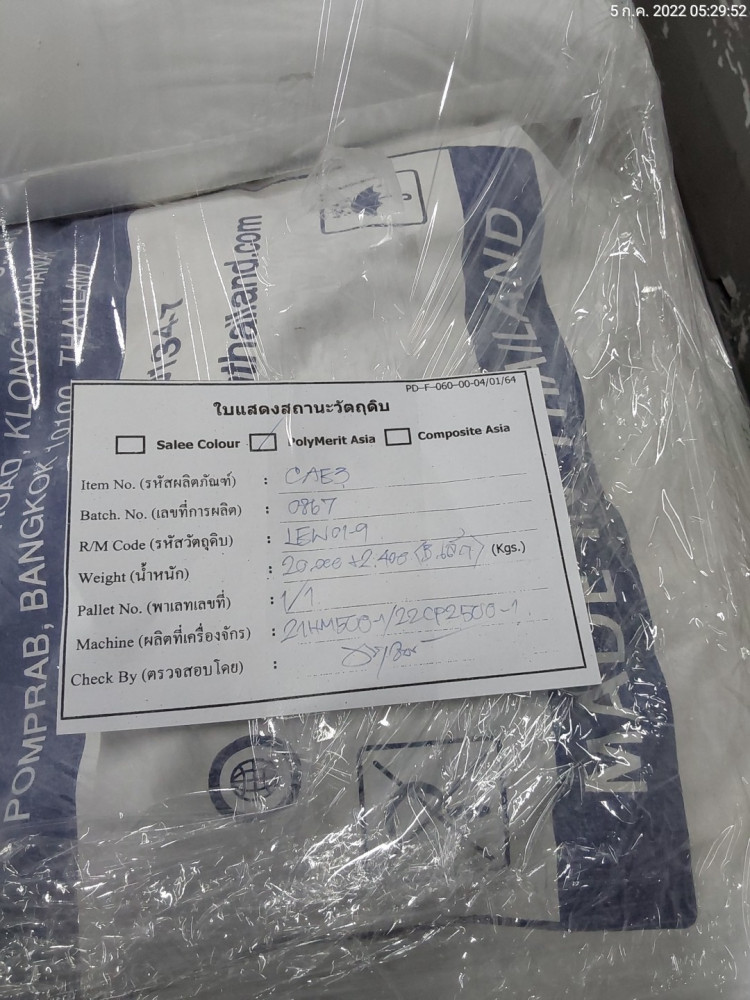 5 ก.ค. 2022 05:29:52
THAILAND
thailand.com
ROAD, KLONG MAHANA
POMPRAB, BANGKOK 10100 THAILAND
MADE THAILAND
PD-F-060-00-04/01/64
ใบแสดงสถานะวัตถุดิบ
Salee Colour PolyMerit Asia Composite Asia
Item No. (รหัสผลิตภัณฑ์) : CAE3
Batch. No. (เลขที่การผลิต) : 0867
R/M Code (รหัสวัตถุดิบ) : LEW01-9
Weight (น้ำหนัก) : 20.000 +2.400 (Kgs.)
Pallet No. (พาเลทเลขที่) : 1/1
Machine (ผลิตที่เครื่องจักร) : 21HM500-1/22CP2500-1
Check By (ตรวจสอบโดย) :